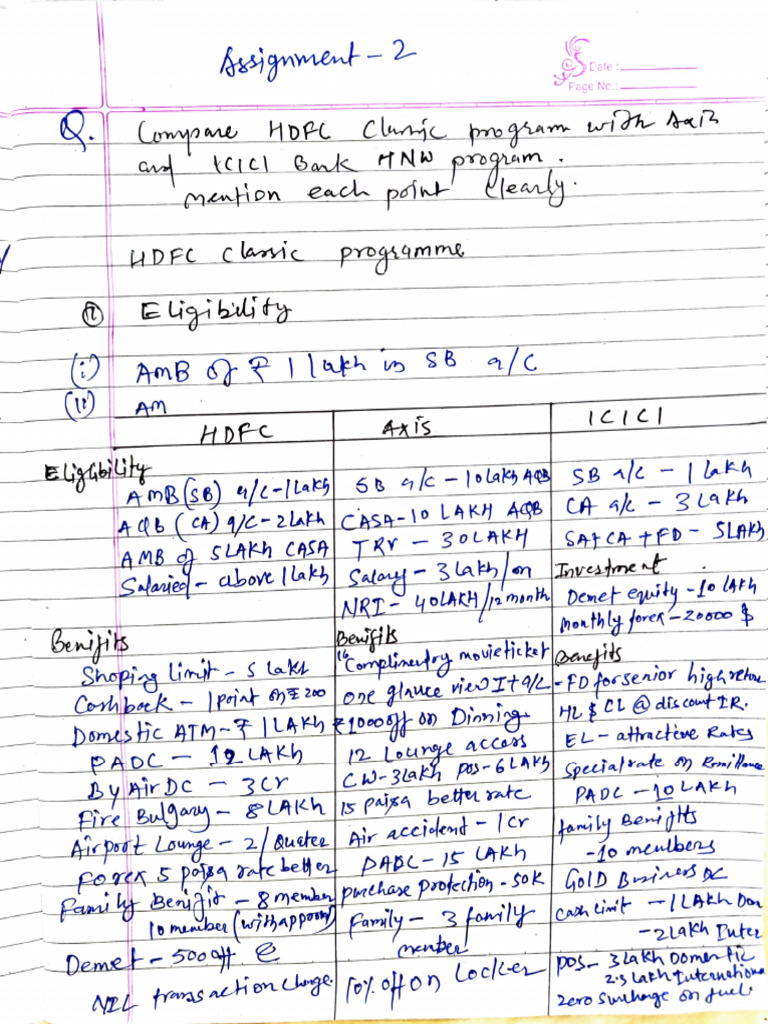 Assignment - 2
Date :
Page No.:
Q. Compare HDFC Classic program with Axis
and ICICI Bank HNW program.
mention each point Clearly.
HDFC Classic programme
Eligibility
(i) AMB of ₹ 1 lakh in SB a/c
(ii) AM
HDFC
Eligibility
AMB (SB) a/c - 1 Lakh
AQB (CA) a/c - 2 Lakh
AMB of 5 LAKH CASA
Salaried - above 1 Lakh
Benifits
Shoping limit - 5 Lakh
Cashback - 1 point on ₹ 200
Domestic ATM - ₹ 1 LAKH
PADC - 12 LAKH
By Air DC - 3 Cr
Fire Bulgary - 8 LAKH
Airport Lounge - 2/Quater
Forex 5 paisa rate better
Family Benifit - 8 member
10 member (with approval)
Demet - 500 off
NIL transaction charge.
Axis
SB a/c - 10 Lakh AQB
CASA - 10 LAKH AQB
TRV - 30 LAKH
Salary - 3 Lakh/on
NRI - 40 LAKH/12 month
Benifits
Complimentry movie ticket
one glance view I+ a/c
₹ 1000 off on Dinning
12 Lounge access
CW - 3 Lakh POS - 6 LAKH
15 paisa better rate
Air accident - 1 Cr
PADC - 15 LAKH
purchase protection - 50K
Family - 3 family
member
10% off on Locker
ICICI
SB a/c - 1 Lakh
CA a/c - 3 Lakh
SA + CA + FD - 5 LAKH
Investment
Demet equity - 10 LAKH
monthly forex - 20000 $
Benefits
- FD for senior high return
HL $ CL @ discount IR.
EL - attractive Rates
Special rate on Remittance
PADC - 10 LAKH
family Benifits
- 10 members
GOLD Business DC
cash limit - 1 LAKH Dom
- 2 Lakh Inter
POS - 3 Lakh Domestic
2.3 Lakh International
Zero Surcharge on fuel.